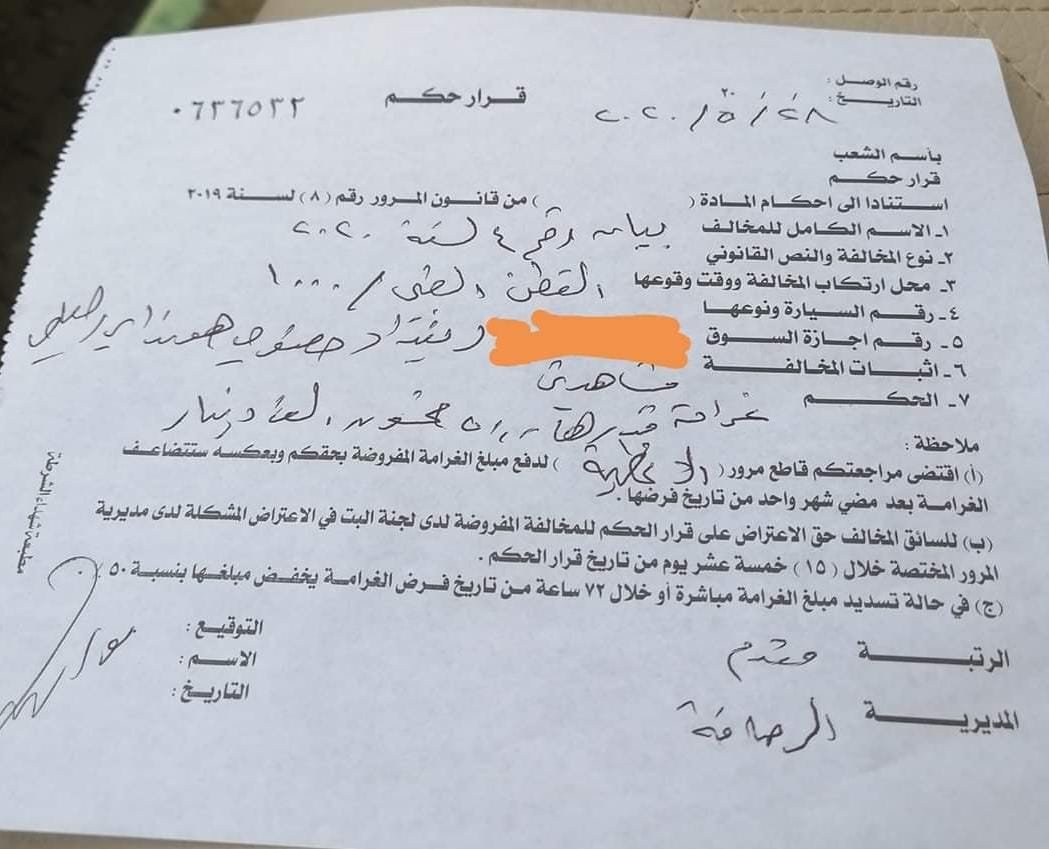 رقم الوصل :
قرار حكم
٠٦٣٦٥٣٢
التاريخ : ٢٠
٢٠٢٠/٥/٢٨
بأسم الشعب
قرار حكم
استنادا الى احكام المادة ( ) من قانون المرور رقم (٨) لسنة ٢٠١٩
١ـ الاسم الكامل للمخالف
بيان رقم ٤ لسنة ٢٠٢٠
٢ـ نوع المخالفة والنص القانوني
٣ـ محل ارتكاب المخالفة ووقت وقوعها
١٠٠٠/
٤ـ رقم السيارة ونوعها
بغداد خصوصي
٥ـ رقم اجازة السوق
٦ـ اثبات المخالفة
مشاهدتي
٧ـ الحكم
غرامة قدرها خمسون الف دينار
ملاحظة :
(أ) اقتضى مراجعتكم قاطع مرور ( الاعظمية ) لدفع مبلغ الغرامة المفروضة بحقكم وبعكسه ستتضاعف
الغرامة بعد مضي شهر واحد من تاريخ فرضها .
(ب) للسائق المخالف حق الاعتراض على قرار الحكم للمخالفة المفروضة لدى لجنة البت في الاعتراض المشكلة لدى مديرية
المرور المختصة خلال (١٥) خمسة عشر يوم من تاريخ قرار الحكم .
(ج) في حالة تسديد مبلغ الغرامة مباشرة أو خلال ٧٢ ساعة من تاريخ فرض الغرامة يخفض مبلغها بنسبة ٥٠ ٪
الرتبة مقدم
التوقيع :
الاسم :
المديرية الرصافة
التاريخ :
مطبعة شهداء الشرطة